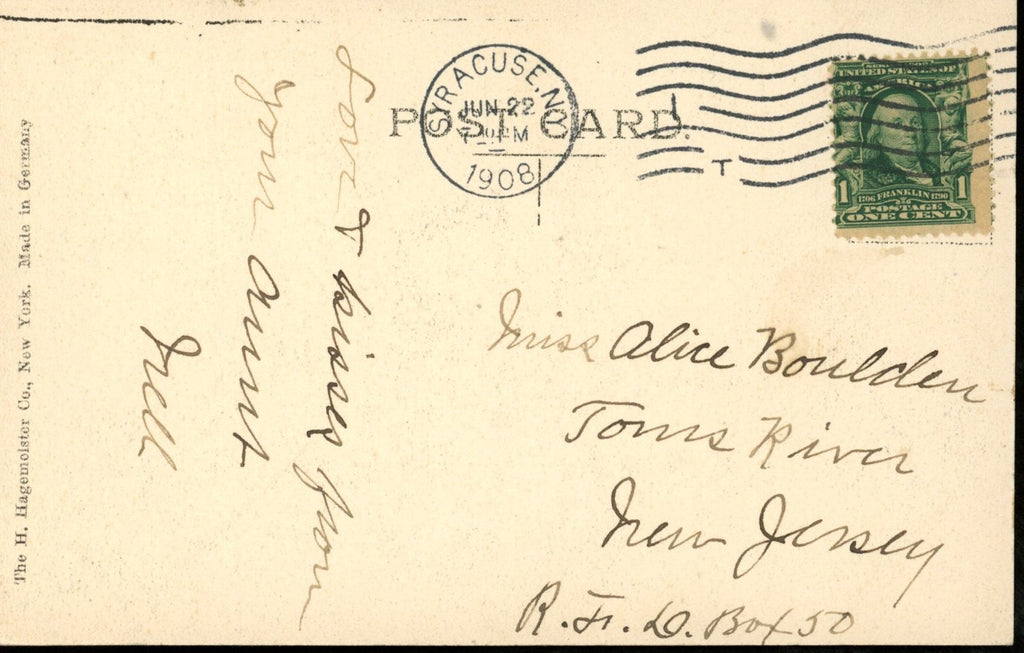 The H. Hagemeister Co., New York. Made in Germany
Love & kisses from
your aunt
Nell
POST CARD.
SYRACUSE, N.Y.
JUN 22
1908
T
UNITED STATES OF
AMERICA
1 1
1706 FRANKLIN 1790
POSTAGE
ONE CENT
Miss Alice Boulden
Toms River
New Jersey
R.F.D. Box 50